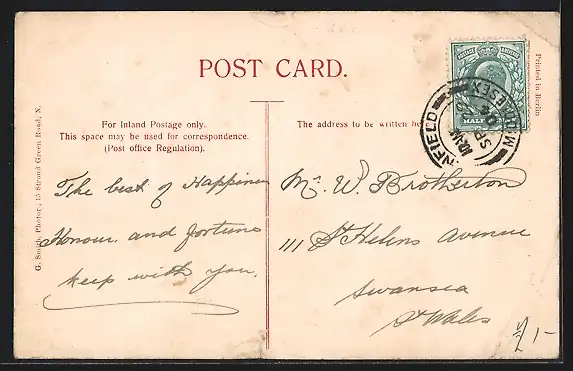 POST CARD.
For Inland Postage only.
This space may be used for correspondence.
(Post office Regulation).
The address to be written he
The best of Happiness
Honour and fortune
keep with you.
Mr. W. Brotherton
111 St Helens Avenue
Swansea
S. Wales
G. Smith, Photor., 15 Stroud Green Road, N.
Printed in Berlin
HALF
NFIELD
MIDDLESEX
SP
1/-